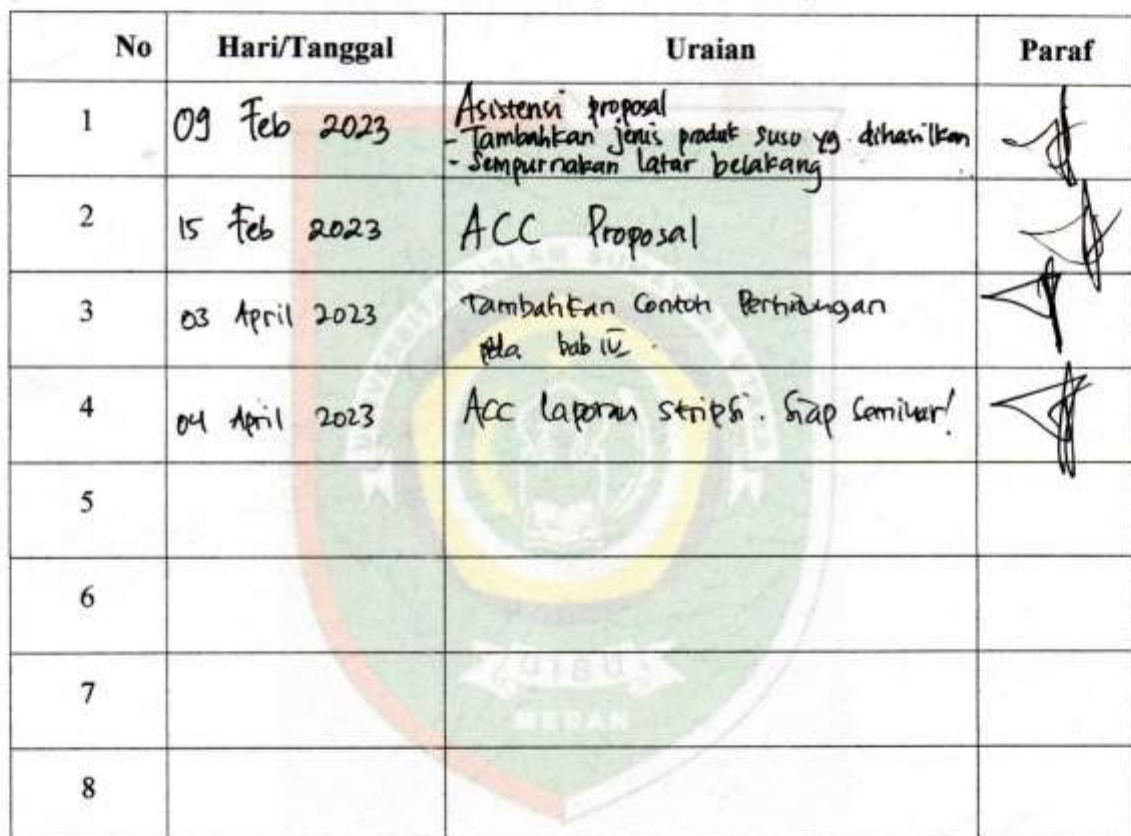 No Hari/Tanggal Uraian Paraf
1 09 Feb 2023 Asistensi proposal
- Tambahkan jenis produk susu yg dihasilkan
- Sempurnakan latar belakang
2 15 Feb 2023 ACC Proposal
3 03 April 2023 Tambahkan Contoh Perhitungan
pada bab IV.
4 04 April 2023 Acc laporan skripsi. Siap Seminar!
5
6
7
8
UISU
MEDAN